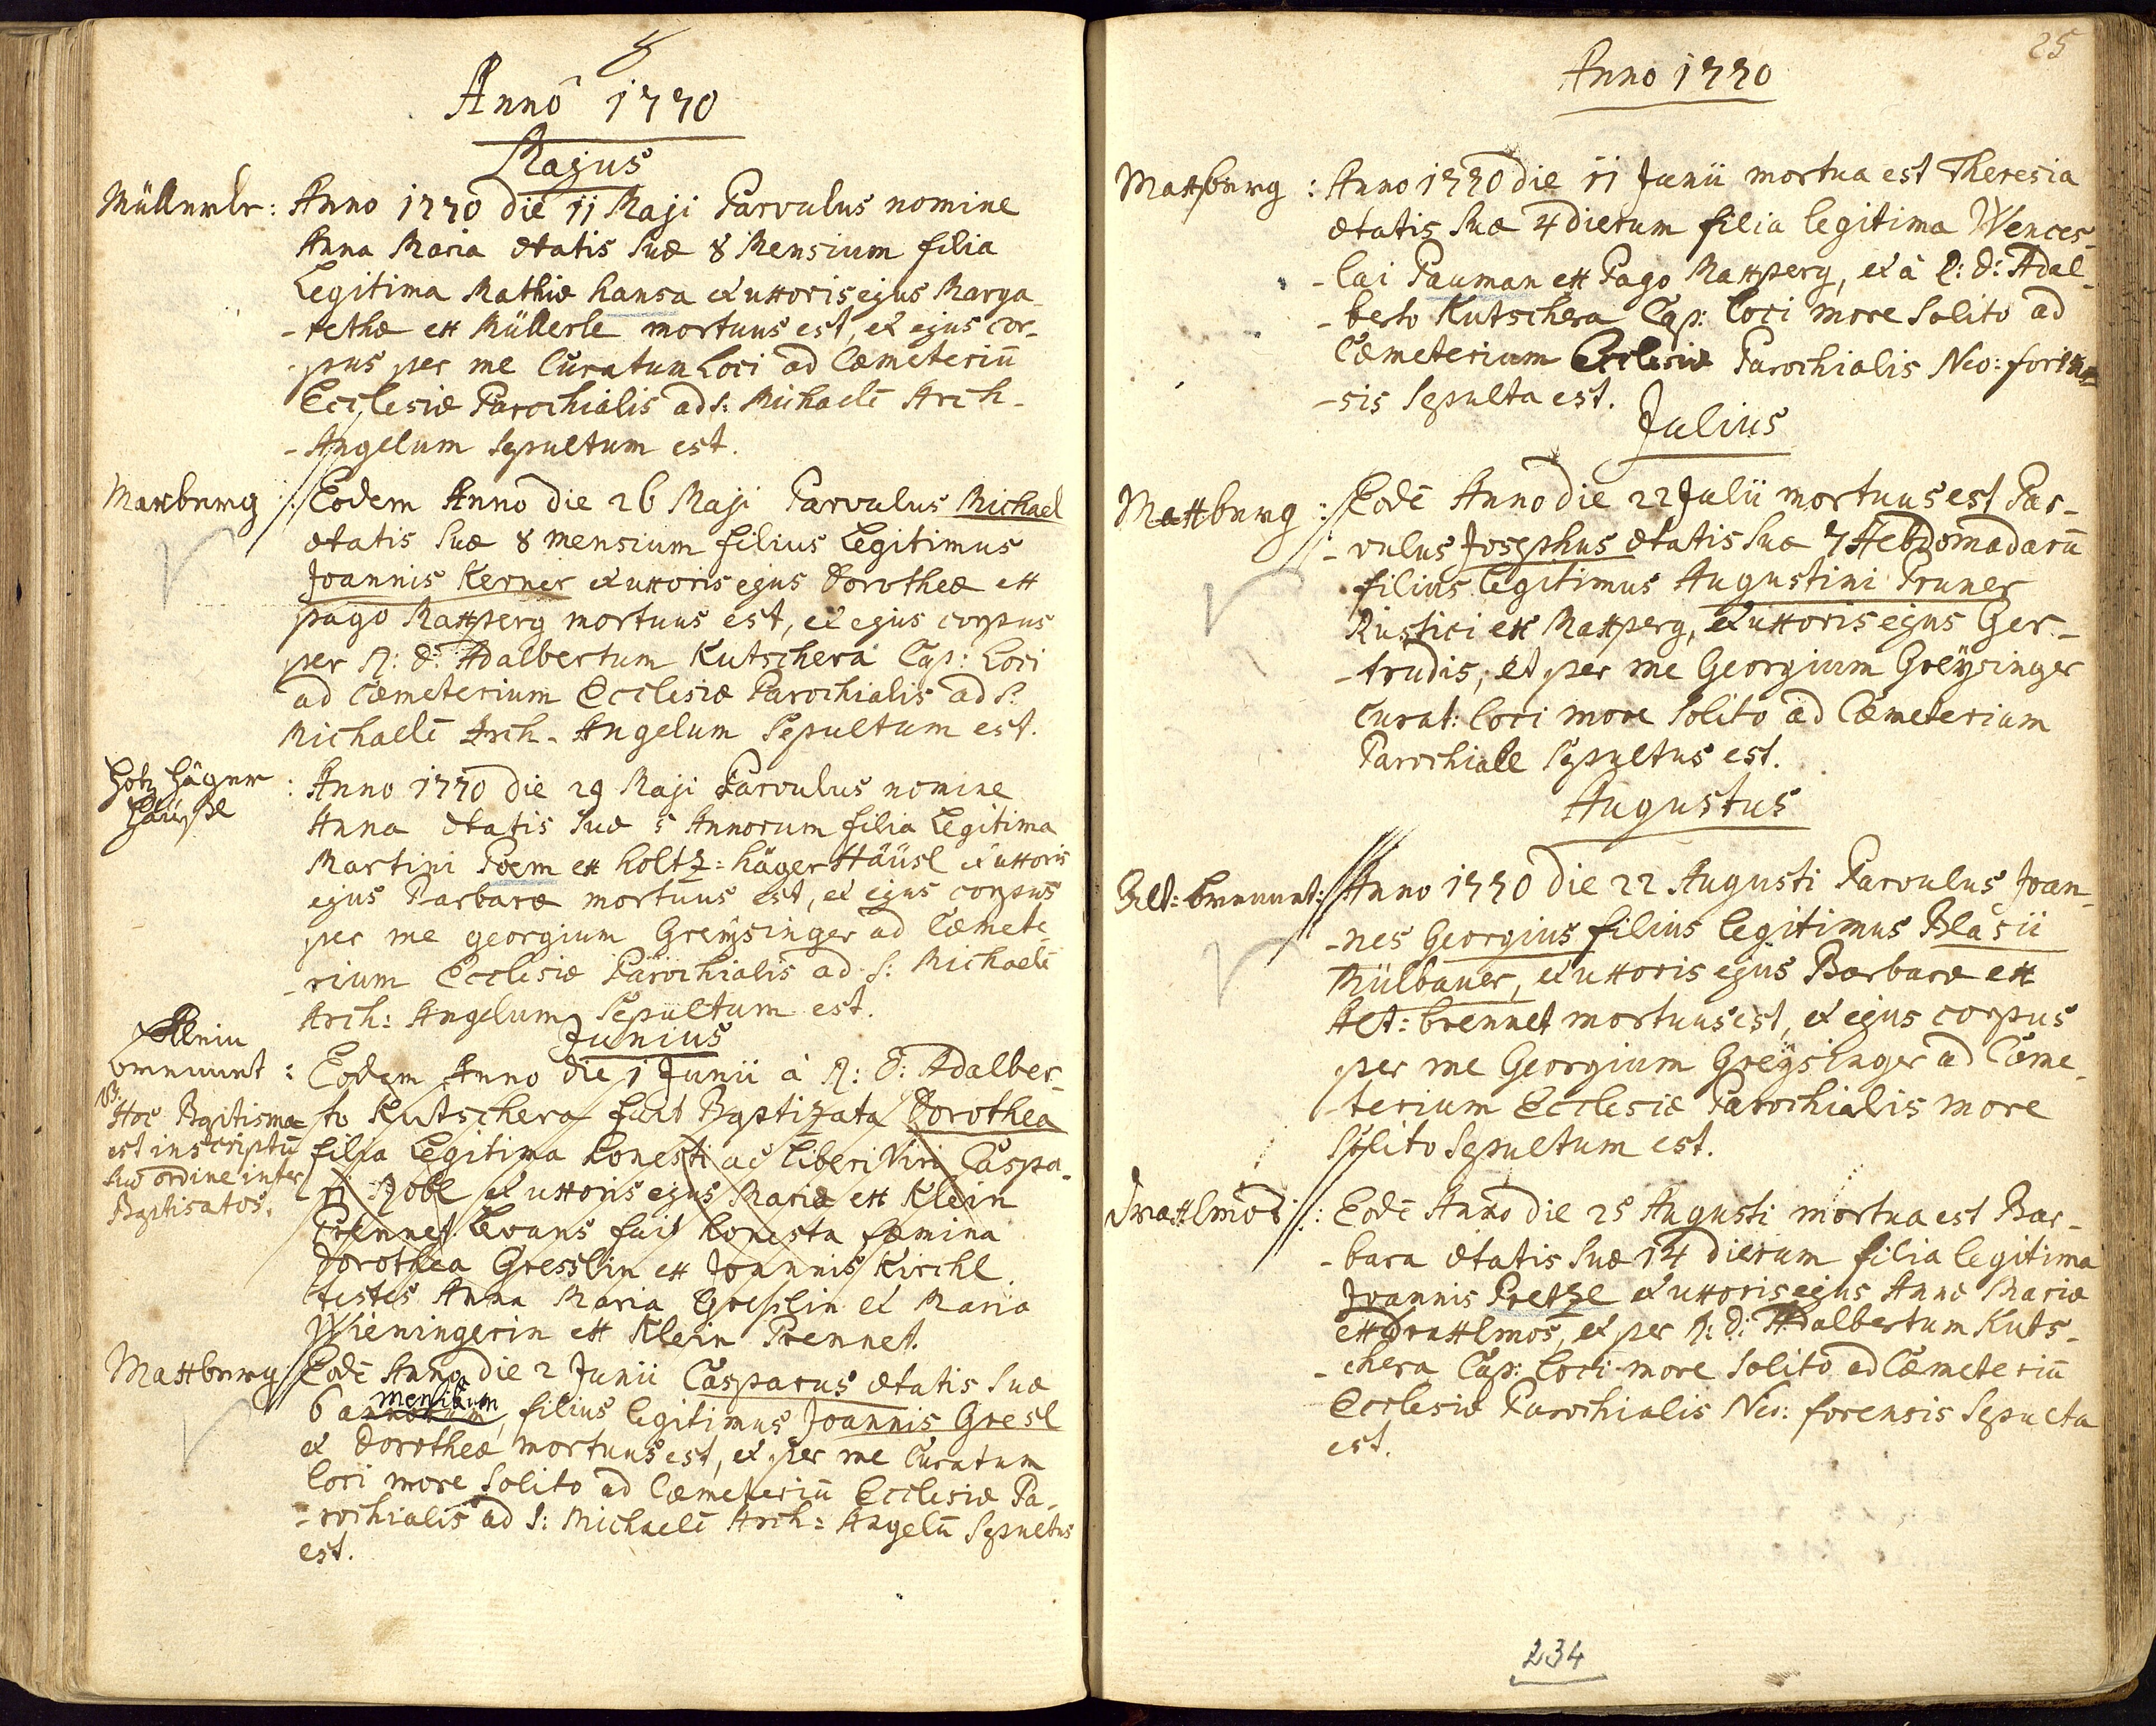 Anno 1770
Majus
Müllerle: Anno 1770 die 11 Maji Parvulus nomine
Anna Maria ætatis suæ 8 Mensium filia
Legitima Mathiæ Hansa & uxoris ejus Marga-
-rethæ ex Müllerle mortuus est, et ejus cor-
-pus per me Curatum Loci ad Cæmeteriū
Ecclesiæ Parochialis ad S: Michaelē Arch-
-Angelum sepultum est.
Maxburg : Eodem Anno die 26 Maji Parvulus Michael
ætatis suæ 8 mensium filius Legitimus
Joannis Kerner & uxoris ejus Dorotheæ ex
pago Maxperg mortuus est, et ejus corpus
per R: D: Adalbertum Kutschera Cap: Loci
ad Cæmeterium Ecclesiæ Parochialis ad S:
Michaelē Arch-Angelum Sepultum est.
Holtz häger
häusl
: Anno 1770 die 29 Maji Parvulus nomine
Anna ætatis suæ 5 Annorum filia Legitima
Martini Poem ex Holtz=häger Häüsl & uxoris
ejus Barbaræ mortuus est, et ejus corpus
per me georgium Greÿsinger ad Cæmete
-rium Ecclesiæ Parochialis ad S: Michaelē
Arch: Angelum Sepultum est.
Junius
Klein
brennet : Eodem Anno die 1 Junii à R: D: Adalber-
NB.
Hoc Baptisma
est inscriptū
suo ordine inter
Baptisatos.
to Kutschera fuit Baptizata Dorothea
filia Legitima honesti ac liberi Viri Caspa-
ri Robl & uxoris ejus Mariæ ex Klein
Prennet. Levans fuit honesta fæmina
Dorothea Gresslin ex Joannis Kirchl.
testes Anna Maria Gresslin et Maria
Wieningerin ex Klein Prennet.
Maxburg : Eodē Anno die 2 Junii Casparus ætatis suæ
mensium
6 annorum, filius legitimus Joannis Gresl
et Dorotheæ mortuus est, et per me Curatum
loci more solito ad Cæmeteriū Ecclesiæ Pa-
-rochialis ad S: Michaelē Arch: Angelū Sepultus
est.
25
Anno 1770
Maxburg : Anno 1770 die 11 Junii mortua est Theresia
ætatis suæ 4 dierum filia legitima Wences-
-lai Pauman ex Pago Maxperg, et à R: D: Adal-
-berto Kutschera Cap: Loci more solito ad
Cæmeterium Ecclesiæ Parochialis Neo:foren
-sis sepulta est.
Julius
Maxburg : Eodē Anno die 22 Julii mortuus est Par-
-vulus Josephus ætatis suæ 7 Hebdomadarū
filius legitimus Augustini Pruner
Rustici ex Maxperg, & uxoris ejus Ger-
-trudis, et per me Georgium Greÿsinger
Curat: loci more solito ad Cæmeterium
Parochiale sepultus est.
Augustus
Alt: brennet: Anno 1770 die 22 Augusti Parvulus Joan-
-nes Georgius filius legitimus Blasii
Mülbauer, & uxoris ejus Barbaræ ex
Alt: brennet mortuus est, et ejus corpus
per me Georgium Greÿsinger ad Cæme-
-terium Ecclesiæ Parochialis more
solito sepultum est.
Draxlmos : Eodē Anno die 25 Augusti mortua est Bar-
-bara ætatis suæ 14 dierum filia legitima
Joannis Pretzl & uxoris ejus Annæ Mariæ
ex Draxlmos, et per R: D: Adalbertum Kuts-
-chera Cap: Loci more solito ad Cæmeteriū
Ecclesiæ Parochialis Neo: forensis sepulta
est.
234